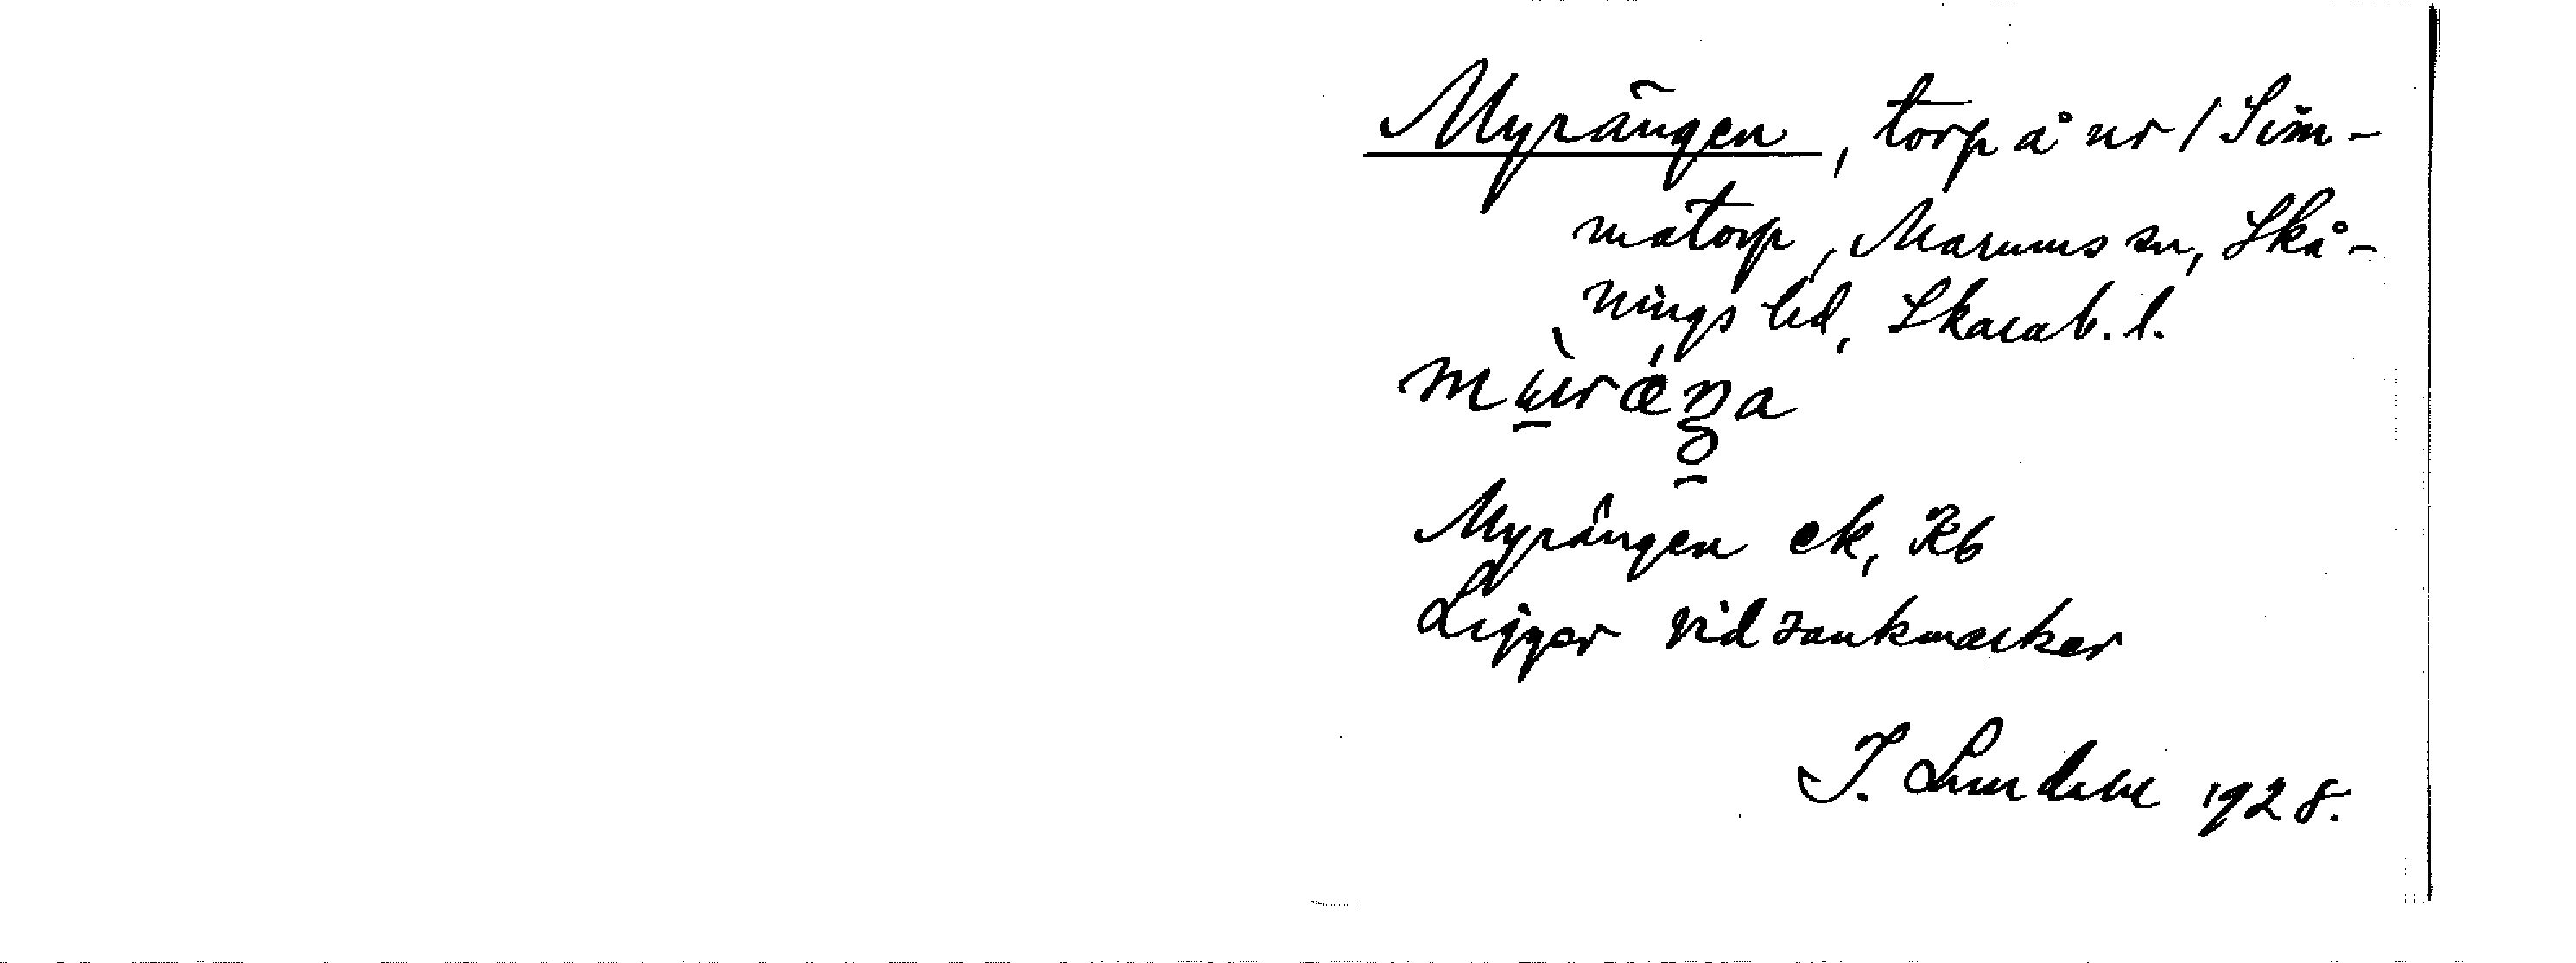 Myrängen, torp å nr 1 Sim-
matorp, Marums sn, Skå-
nings hd, Skarab. l.
Myrängen ek, Kb
Ligger vid sankmarker
I. Lundahl 1928.